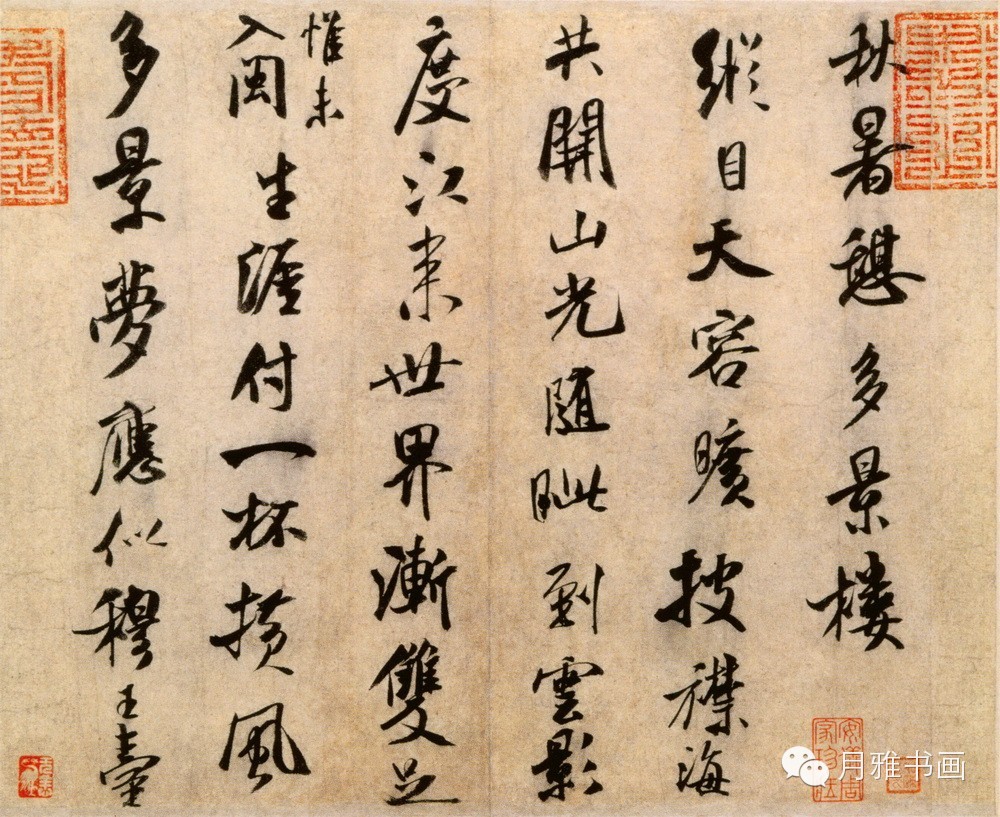 秋暑憩多景樓
縱目天容曠披襟海
共開山光隨眦到雲影
度江來世界漸雙足
惟未
入閩生涯付一杯橫風
多景夢應似穆王臺
月雅书画